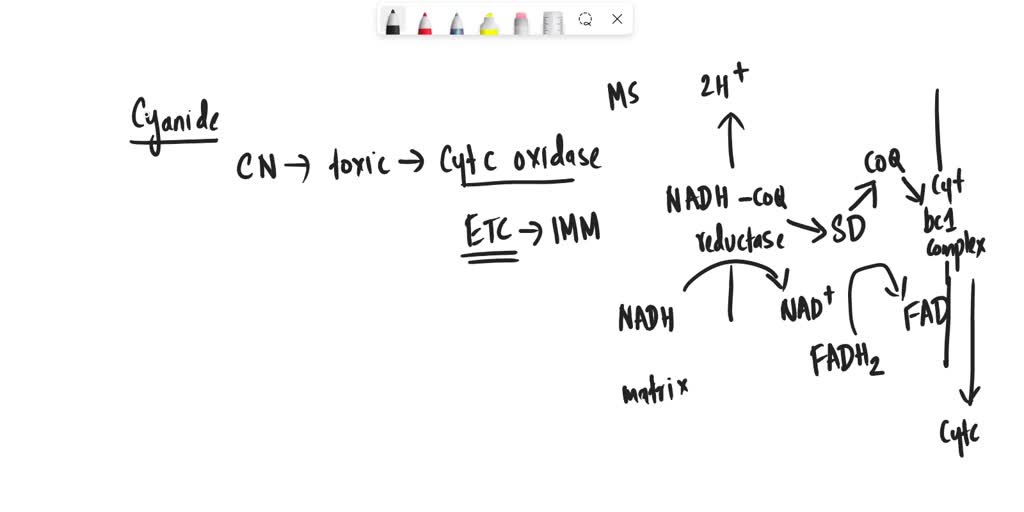 Cyanide
CN → toxic → Cytc oxidase
ETC → IMM
MS
2H+
NADH-CoQ
reductase
SD
CoQ
Cyt
bc1
complex
NADH
NAD+
FADH2
FAD
matrix
Cytc